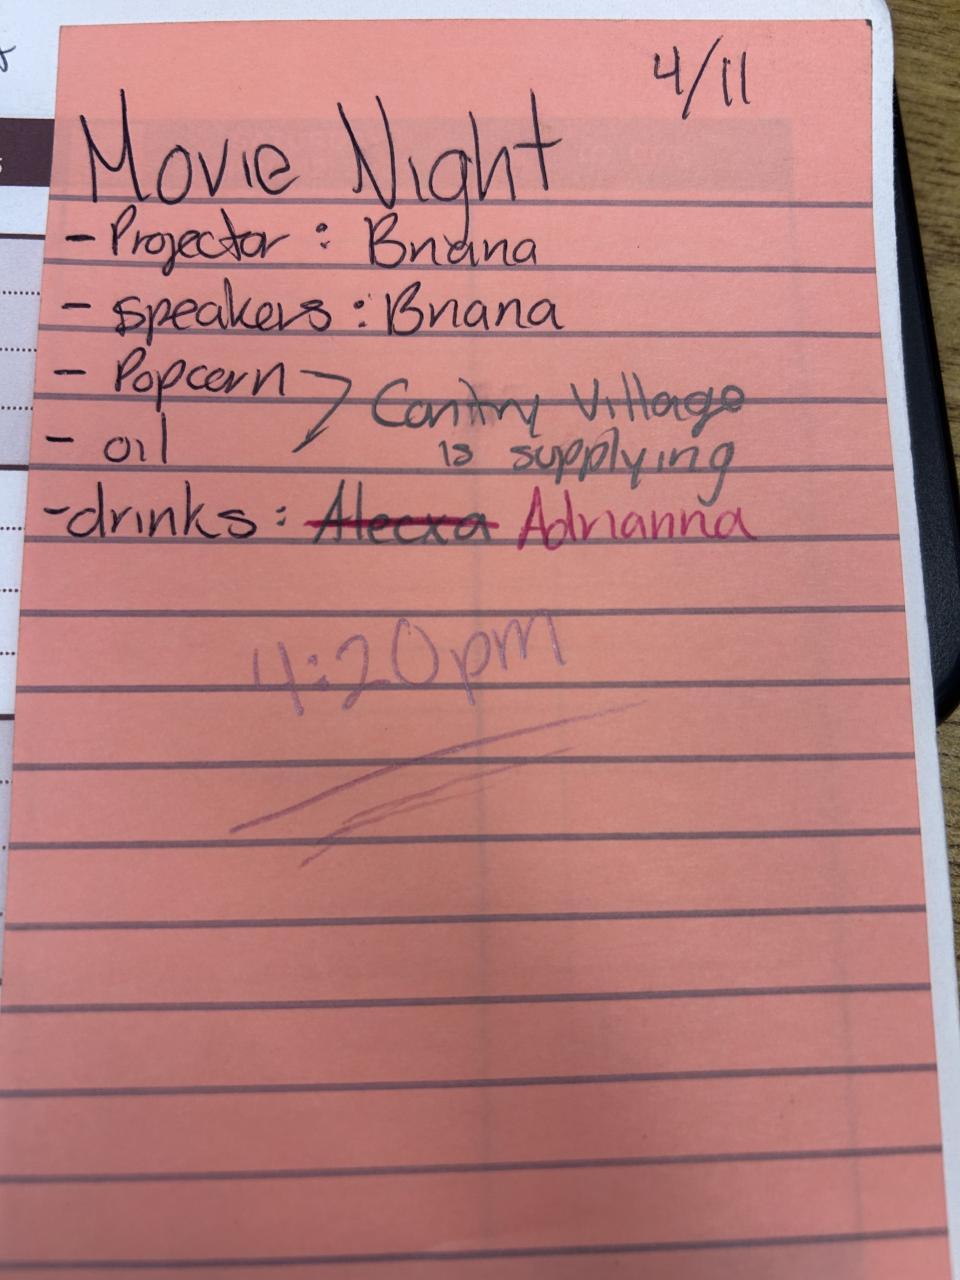 4/11
Movie Night
- Projector : Briana
- speakers : Briana
- Popcorn
- oil
Contry Village
is supplying
- drinks : Alecxa Adrianna
4:20pm